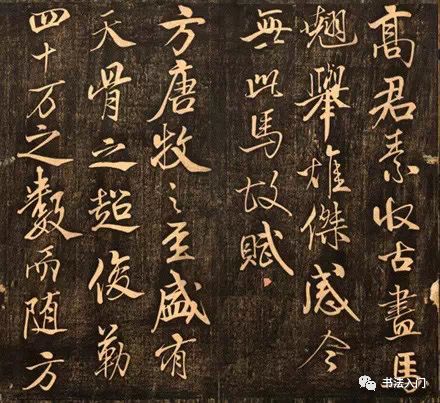 高君素收古畫馬
翹舉雄傑感今
無此馬故賦
方唐牧之至盛有
天骨之超俊勒
四十万之數而随方
书法入门